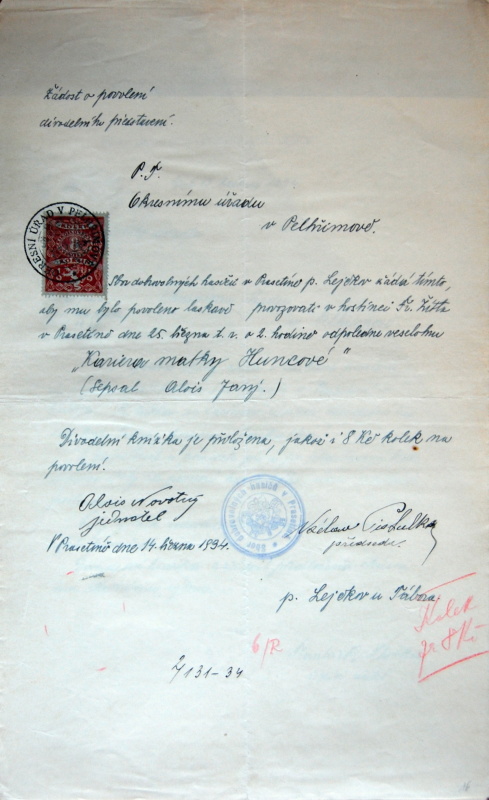 Žádost o povolení
divadelního představení.
P. T.
Okresnímu úřadu
v Pelhřimově.
OKRESNÍ ÚŘAD V PELHŘIMOVĚ
Sbor dobrovolných hasičů v Prasetíně p. Lejčkov žádá tímto,
aby mu bylo povoleno laskavě provozovati v hostinci Fr. Žižta
v Prasetíně dne 25. března t. r. o 2. hodině odpoledne veselohru
„Kariera matky Huncové"
(Sepsal Alois Janj.)
Divadelní knížka je přiložena, jakož i 8 Kč kolek na
povolení.
Alois Novotný
jednatel
Václav
předseda.
V Prasetíně dne 14. března 1934.
p. Lejčkov u Tábora
Kolek
za 8 Kč
6/R
2/131-34